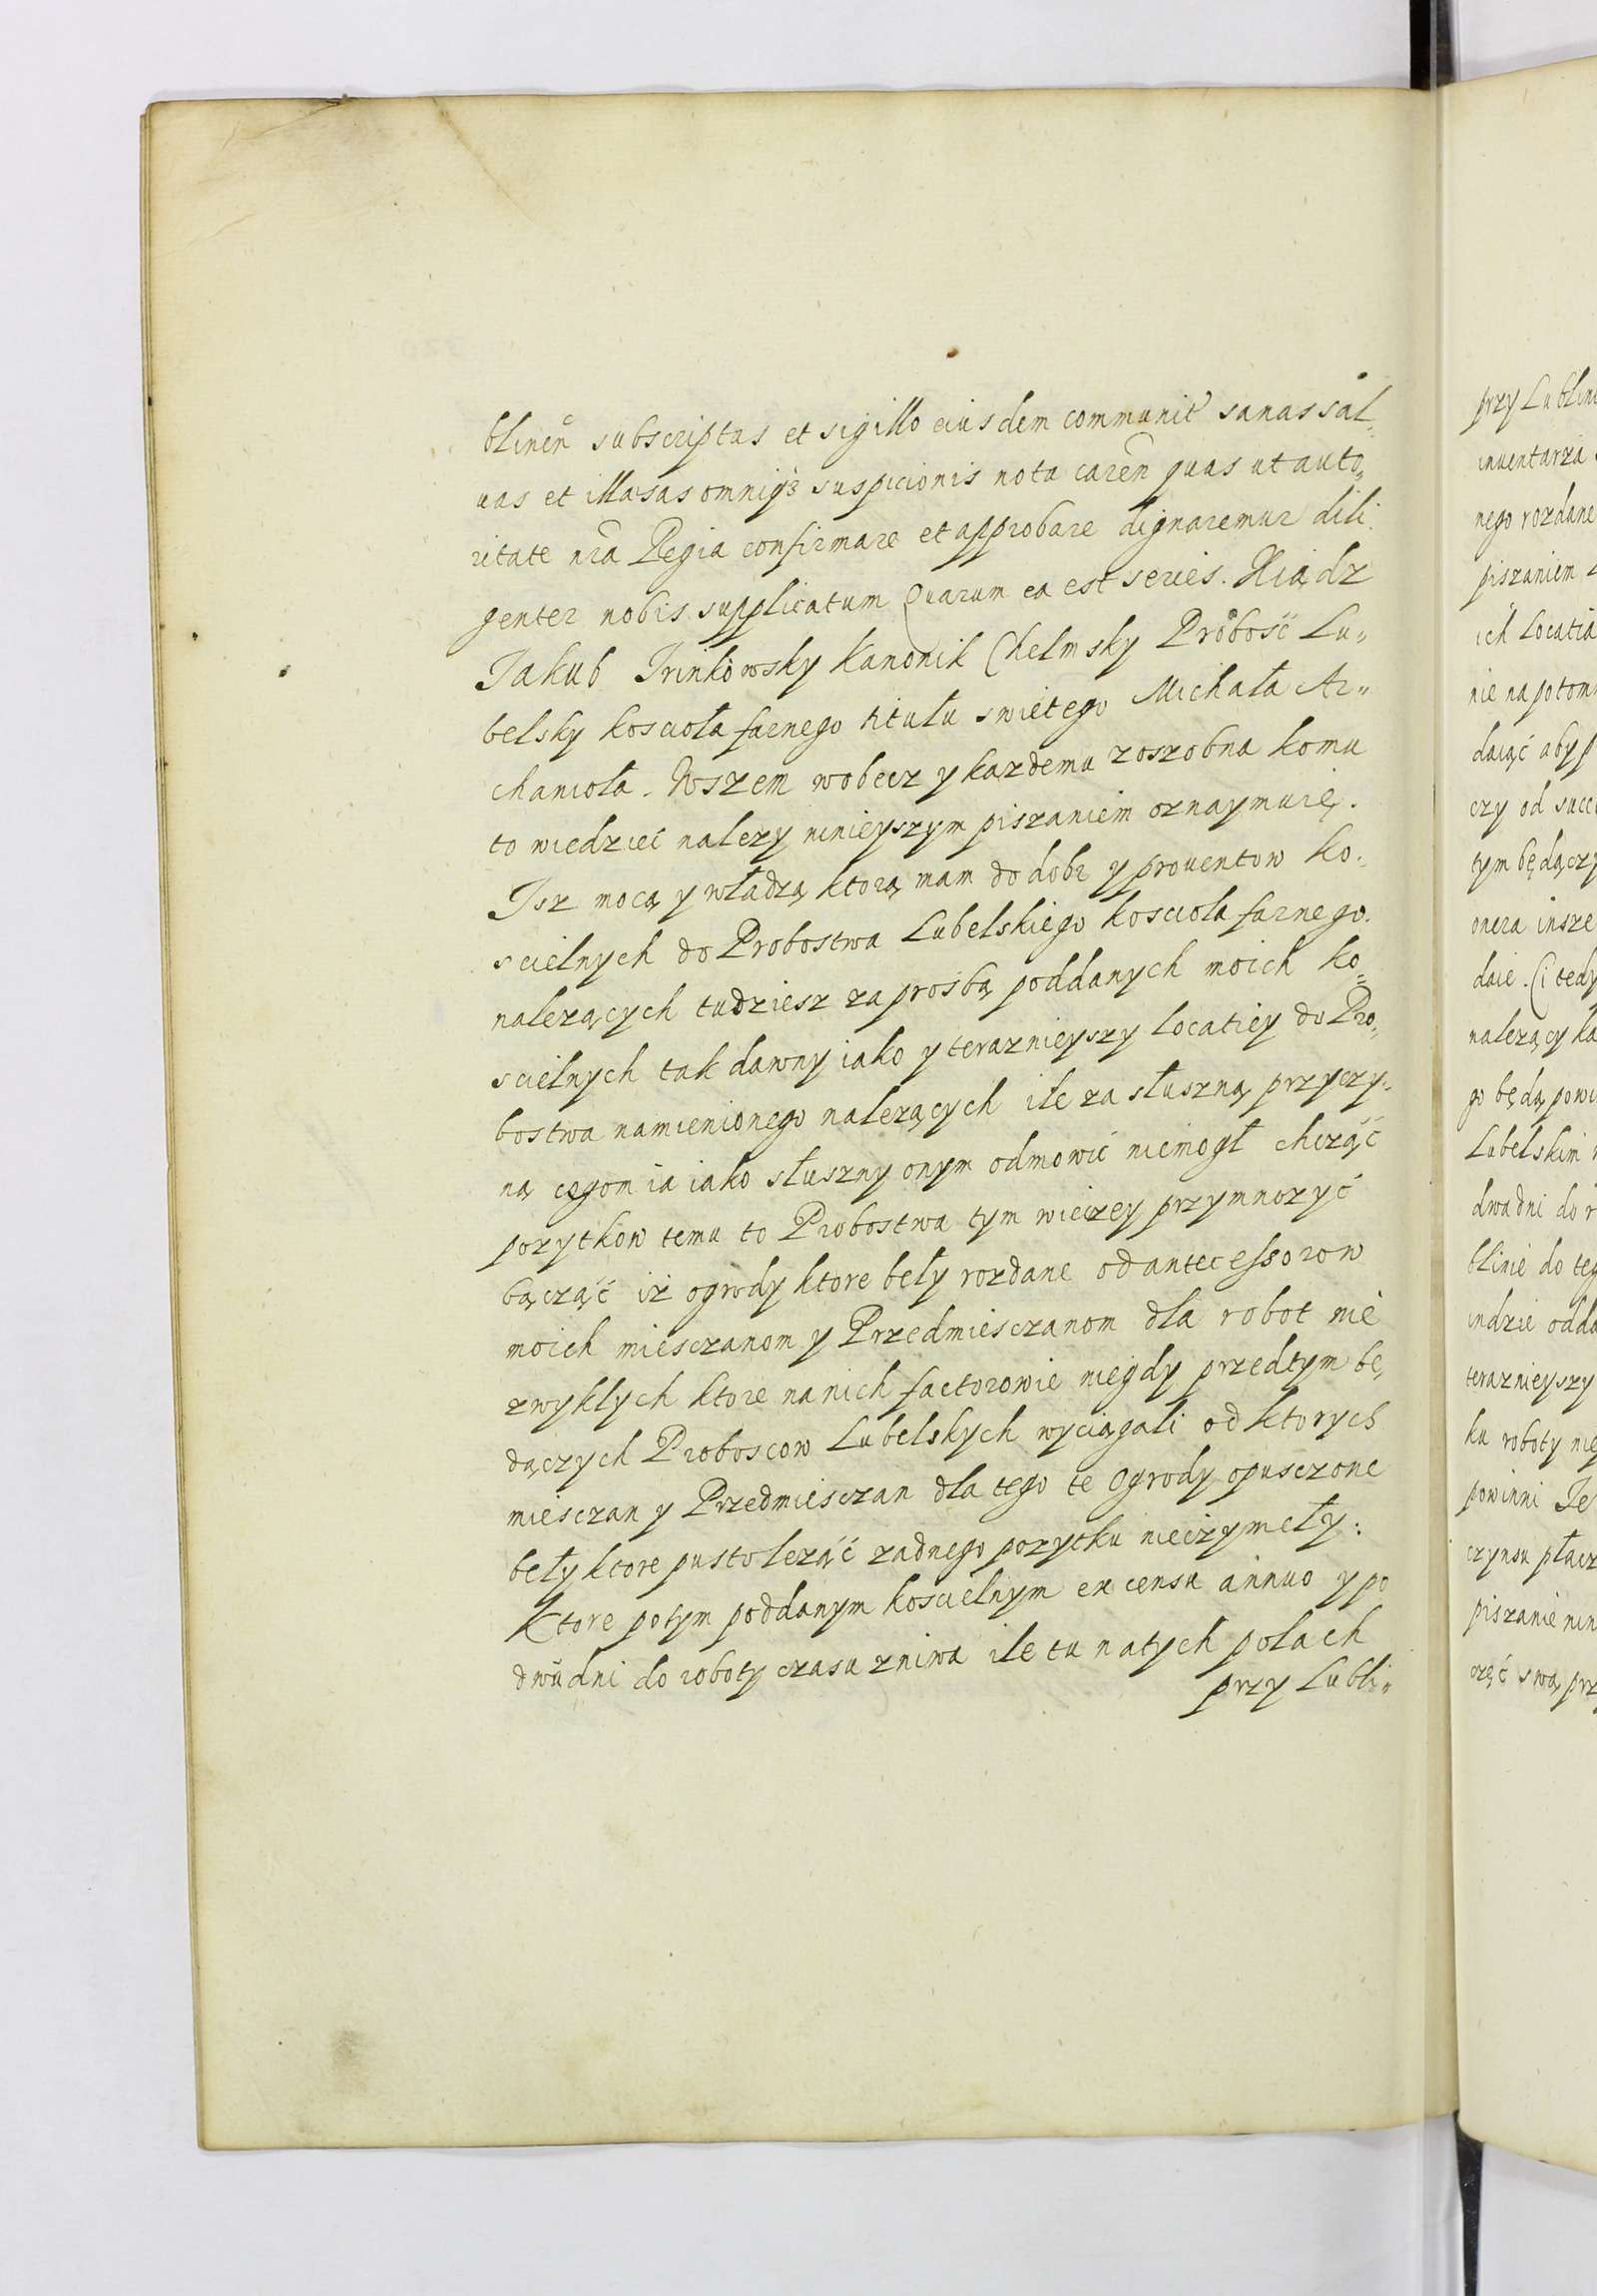 blinen̄ subscriptas et sigillo eiusdem communit̄ sanas sal-
uas et illæsas omniq3 suspicionis nota caren̄ quas ut auto-
ritate nr̄a Regia confirmare et approbare dignaremur dili-
genter nobis supplicatum Quarum ea est series. Xiądz
Jakub Trinkowsky Kanonik Chelmsky Probosć Lu-
belsky kosciola farnego titułu swietego Michała Ar-
chanioła. Wszem wobecz y kazdemu zoszobna komu
to wiedzieć nalezy ninieyszym piszaniem oznaymuię.
Isz mocą y władzą ktorą mam do dobr y prouentow ko-
scielnych do Probostwa Lubelskiego kosciola farnego
nalezących tudziesz za prosbą poddanych moich ko-
scielnych tak dawny iako y teraznieyszy locatiey do Pro-
bostwa namienionego nalezących ile za słuszną przyczy-
ną czegom ia iako słuszny onym odmowić niemogł chcząć
pozytkow temu to Probostwa tym wieczey przymnozyć
bącząć iż ogrody ktore beły rozdane od antecessorow
moich miesczanom y Przedmiesczanom dla robot nie
zwykłych ktore na nich factorowie niegdy przedtym bę
dączych Proboscow Lubelskych wyciągali od ktorych
miesczan y Przedmiesczan dla tego te Ogrody opusczone
beły ktore pusto leząć zadnego pozytku nieczyneły:
Ktore potym poddanym koscielnym ex censu annuo y po
dwu dni do roboty czasu zniwa ile tu na tych polach
przy Lubli-
przy Lublini
inuentarza
nego rozdane
piszaniem
ich Locatia
nie na potom
daiąć aby p
czy od succ
tym będączy
onera insze
daie. Ci tedy
nalezący ka
go będą powi
Lubelskim
dwa dni do r
blinie do teg
indzie odda
teraznieyszy
ku roboty nie
powinni Je
czynsu płacz
piszanie nin
częć swą prz